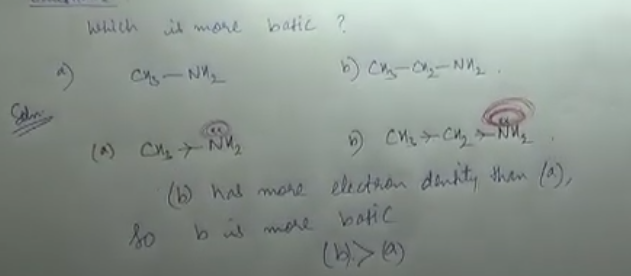 which is more basic ?
a) CH3 — NH2 b) CH3 — CH2 — NH2 .
Soln
(a) CH3 → N̈H2 b) CH3 → CH2 → N̈H2 .
(b) has more electron density than (a),
So b is more basic
(b) > (a)